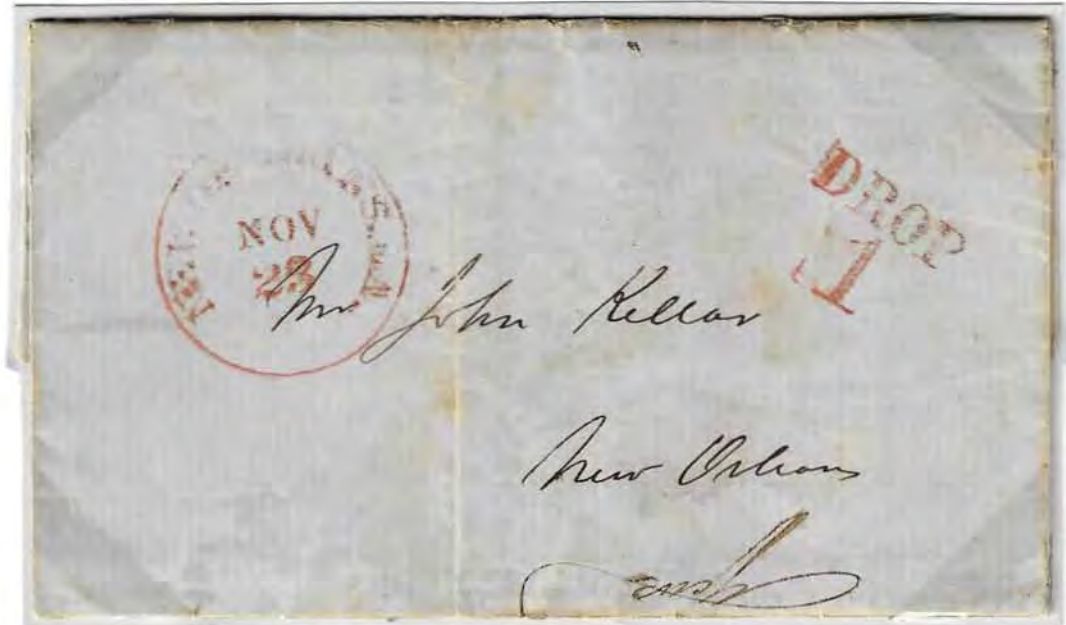 NOV
23
DROP
1
Mr John Kellar
New Orleans